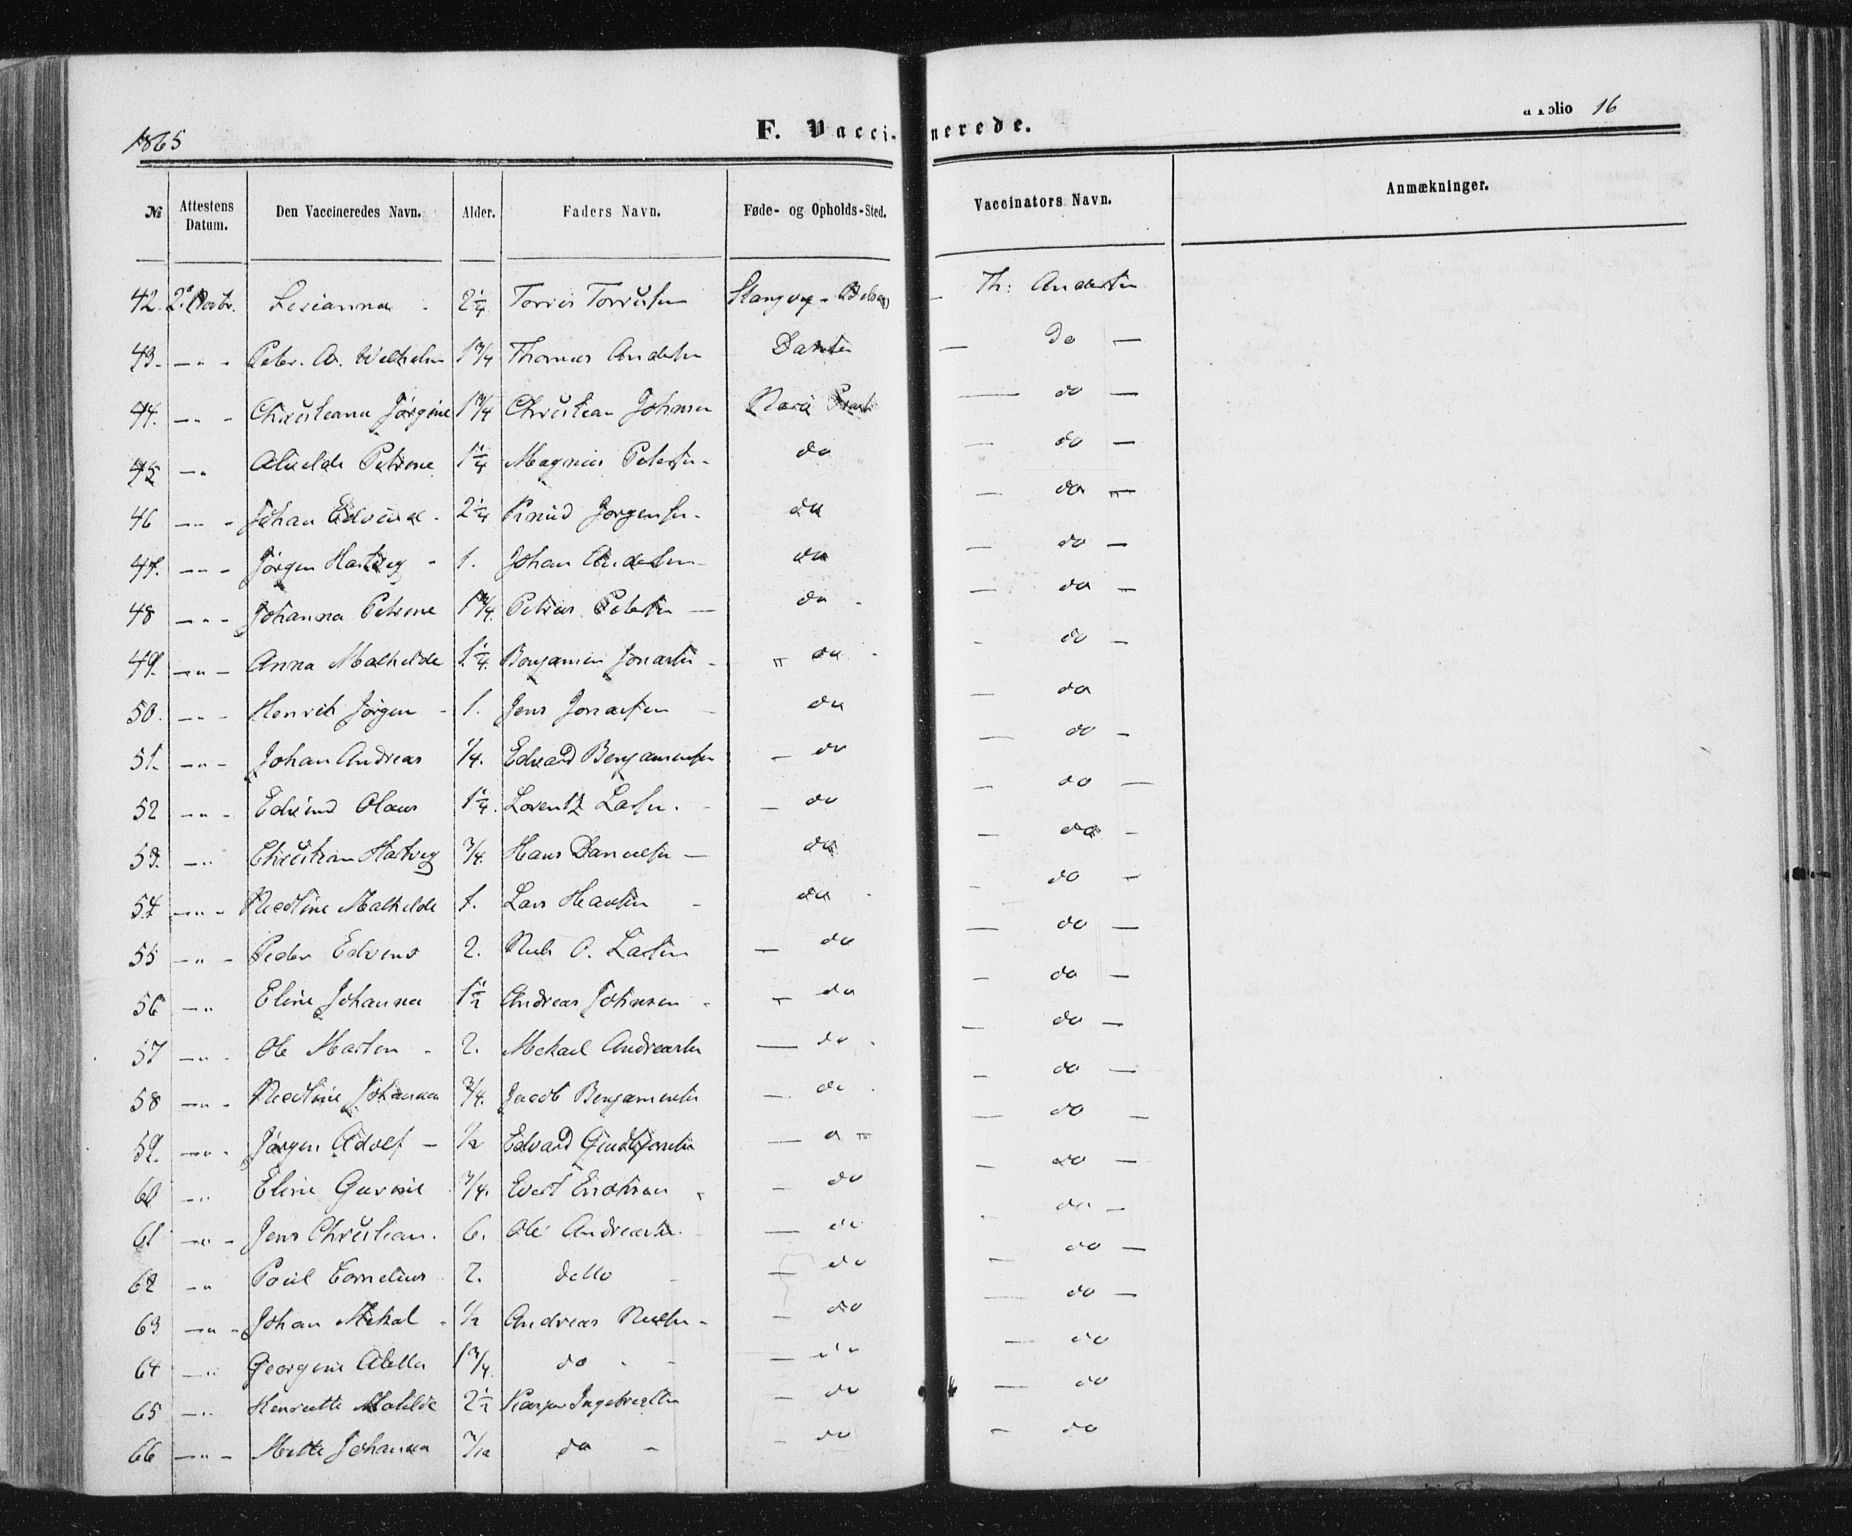 1865 F. Vaccinerede. Folio 16
№ Attestens Datum. Den Vaccineredes Navn. Alder. Faders Navn. Føde- og Opholds-Sted. Vaccinators Navn. Anmækninger.
42. 2. 2 1/4 Torris Torrisen Th: Andersen
43. — " - Peter. A. Wilhelm 1 3/4 Thomas Andersen — Do —
44. — " - Christiana Jørgine 1 3/4 Christian Johnsen — do —
45 — " Petrine 1 1/4 Magnus Petersen - do — do —
46 — " - Johan 2 1/4 Knud Jørgensen - do — do —
47. — " - Jørgen Hartvig - 1. Johan Andersen - do — do —
48 — " - Johanna Petrine 1 3/4. Petrus Petersen — do - — do —
49. — " - Anna Mathilde 1 1/4. Benjamin Jonassen - " do - - do —
50. — " - Henrik Jørgen - 1. Jens Jonassen — do — do
51. — " - Johan Andreas 1/4. Edvard Benjaminsen — do — do -
52 — " - Edvind Olaus 1 1/4. Lorentz Larsen. - — do — do —
53. — " Christian Hartvig 3/4. Hans Danielsen — do — do -
54 — " - Nicoline Mathilde 1. Lars Hansen - do - - do —
55 — " - Peder 2. Nils O. Larsen — do — do —
56 — " Eline Johanna 1 1/2 Andreas Johnsen - — do — do —
57 — " - Ole Marten - 2. Mekael Andreassen — do - — do —
58 — " - Nicoline Johanna 3/4. Jacob Benjaminsen — do - — do —
59. — " - Jørgen Adolf — 1/2 Edvard — do — do —
60 — " Eline 3/4. Evert — do — do —
61 — " - Jens Christian. 6. Ole Andreassen. — do - do —
62 — " Paul Cornelius 2. detto - — do — do —
63 — " - Johan Mekal - 1/2 Andreas Nilsen - — do — do —
64 — " Georgine 1 3/4 do - - — do — do
65 — " Henriette Matilde 2 1/2 Kasper Ingebrigtsen — do — do
66 — " - Mette Johanna 7/12 do - — do — do